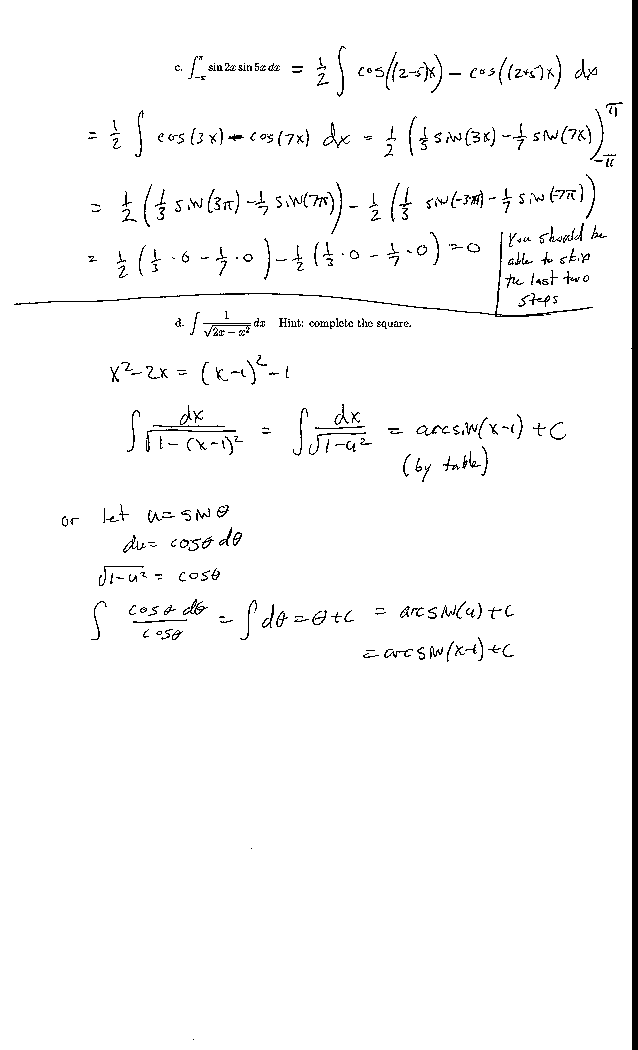 c. ∫_{-π}^{π} sin 2x sin 5x dx = 1/2 ∫ cos((2-5)x) - cos((2+5)x) dx
= 1/2 ∫ cos(3x) - cos(7x) dx = 1/2 (1/3 sin(3x) - 1/7 sin(7x))_{-π}^{π}
= 1/2 (1/3 sin(3π) - 1/7 sin(7π)) - 1/2 (1/3 sin(-3π) - 1/7 sin(-7π))
= 1/2 (1/3 · 0 - 1/7 · 0) - 1/2 (1/3 · 0 - 1/7 · 0) = 0
You should be
able to skip
the last two
steps
d. ∫ 1/√(2x - x²) dx Hint: complete the square.
x² - 2x = (x-1)² - 1
∫ dx/√(1-(x-1)²) = ∫ dx/√(1-u²) = arcsin(x-1) + C
(by table)
or let u = sin θ
du = cos θ dθ
√(1-u²) = cos θ
∫ cos θ dθ/cos θ = ∫ dθ = θ + C = arcsin(u) + C
= arcsin(x-1) + C